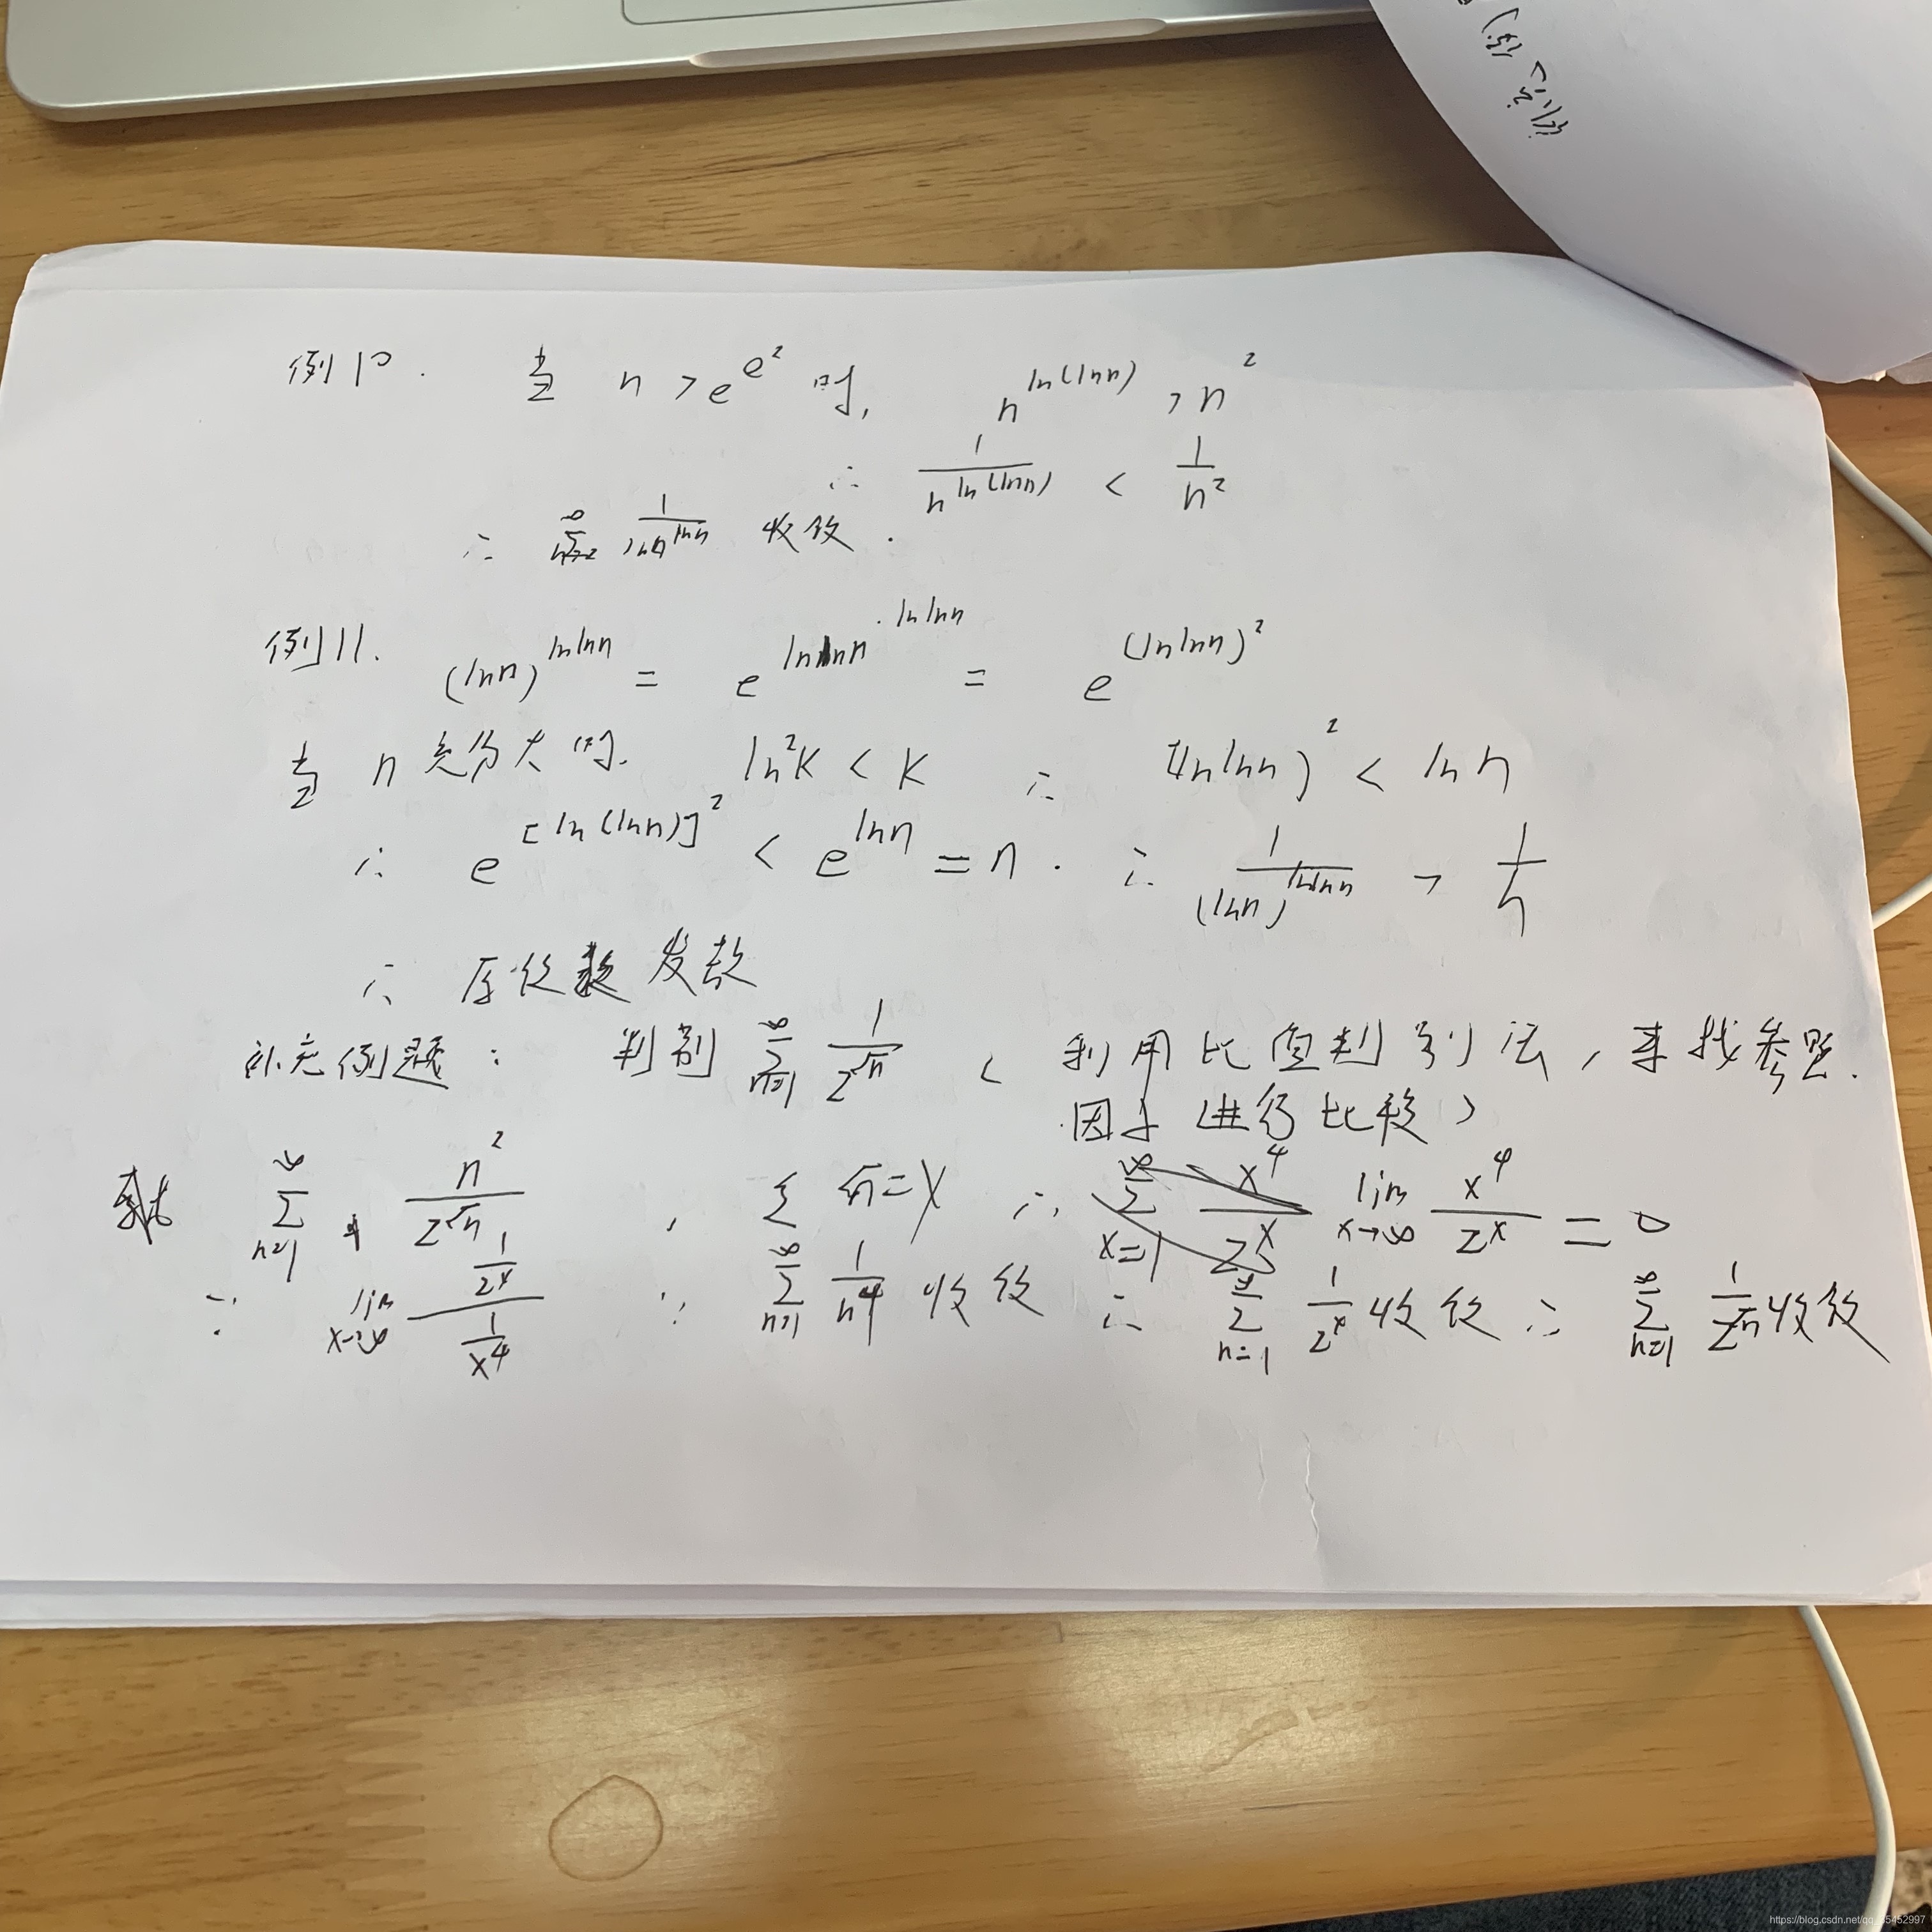 例10. 当 n > e^{e^2} 时, n^{ln(lnn)} > n^2
∴ 1/n^{ln(lnn)} < 1/n^2
∴ ∑_{n=2}^∞ 1/lnn^{lnn} 收敛.
例11. (lnn)^{lnlnn} = e^{lnlnn·lnlnn} = e^{(lnlnn)^2}
当 n 充分大时. ln^2K < K ∴ (lnlnn)^2 < lnn
∴ e^{[ln(lnn)]^2} < e^{lnn} = n. ∴ 1/(lnn)^{lnlnn} > 1/n
∴ 原级数发散
补充例题: 判别 ∑_{n=1}^∞ 1/2^{√n} (利用比值判别法, 来找参照.
因子进行比较)
∑_{n=1}^∞ n^2/2^{√n}, 令 √n=x ∴ ∑_{x=1}^∞ x^4/2^x lim_{x→∞} x^4/2^x = 0
∵ lim_{x→∞} (1/2^x)/(1/x^4) ∵ ∑_{n=1}^∞ 1/n^4 收敛 ∴ ∑_{n=1}^∞ 1/2^x 收敛 ∴ ∑_{n=1}^∞ 1/2^{√n} 收敛